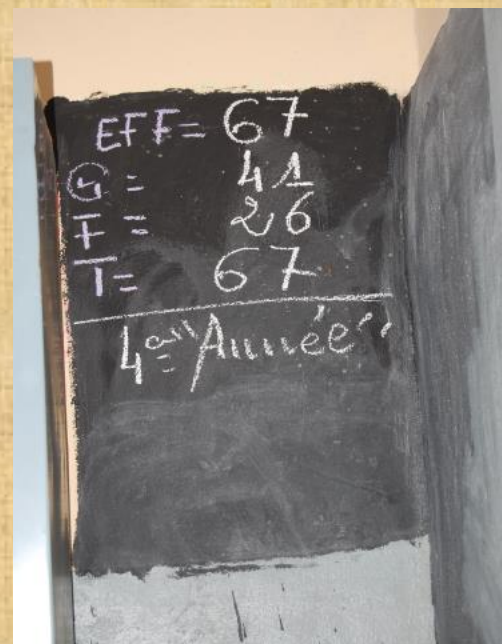 EFF = 67
G = 41
F = 26
T = 67
4e "Année"